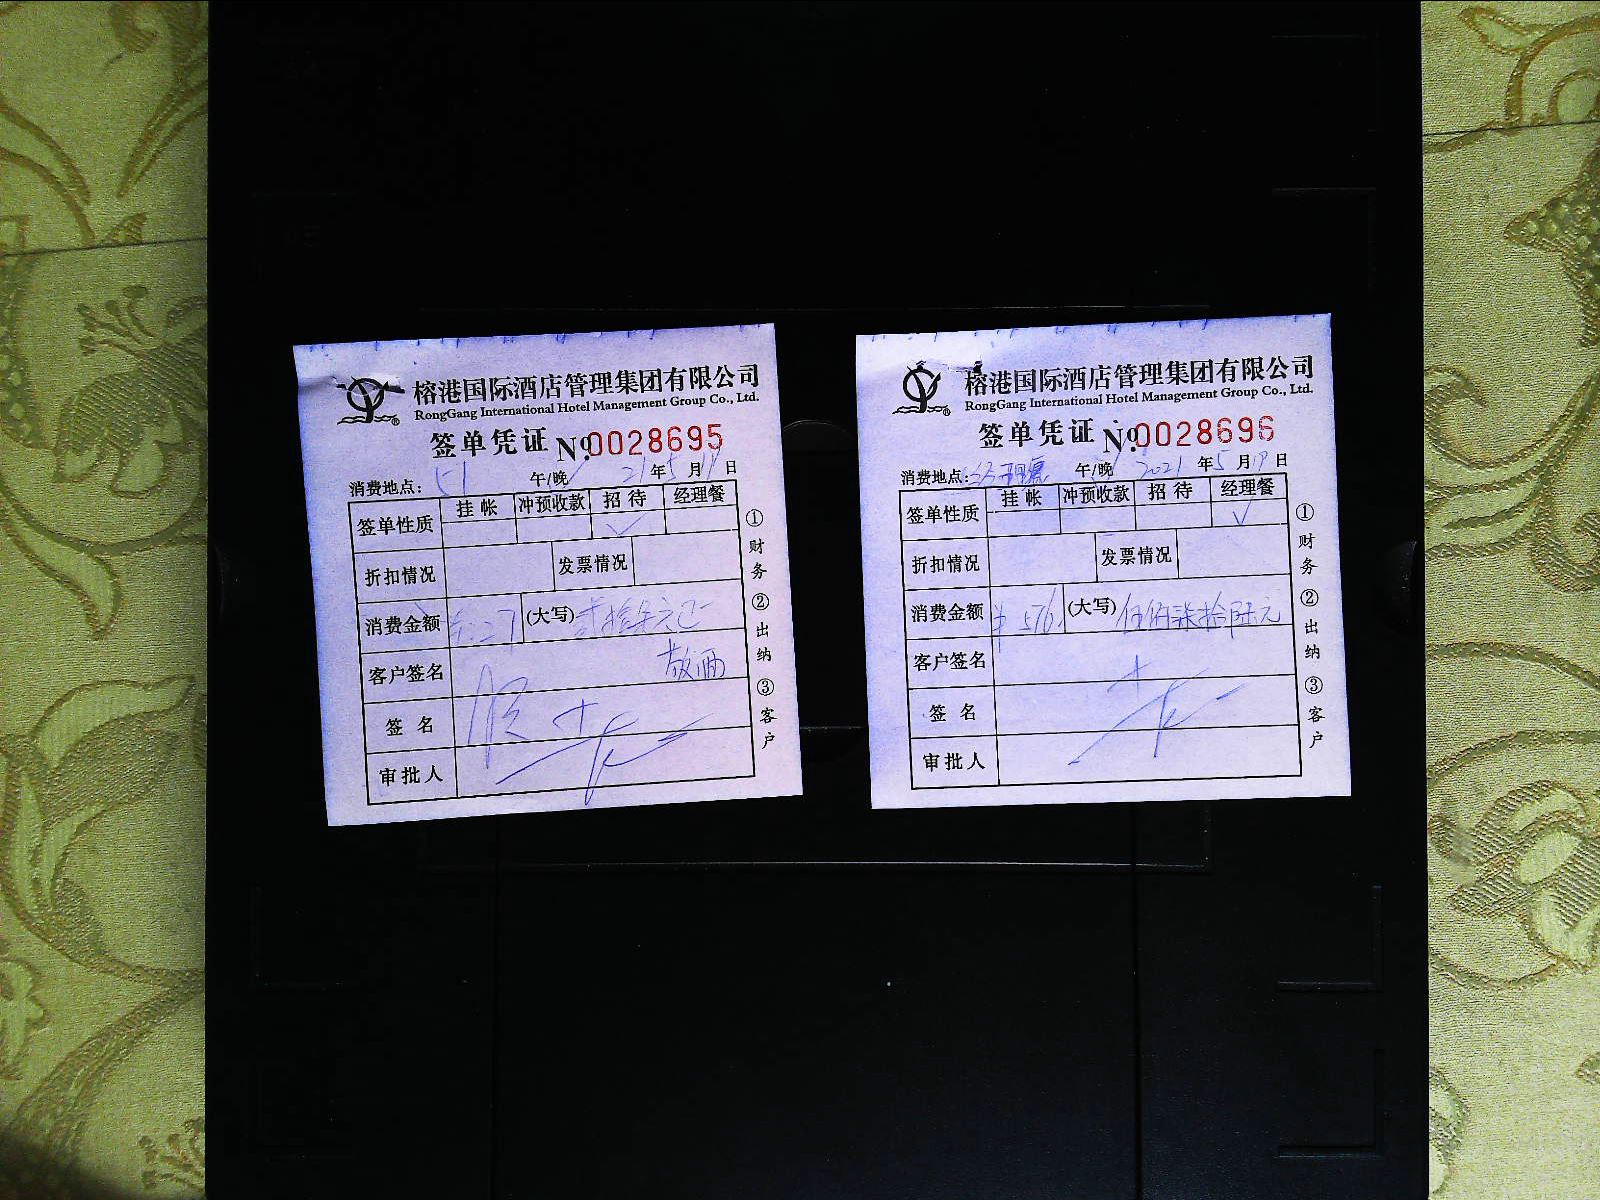 榕港国际酒店管理集团有限公司
RongGang International Hotel Management Group Co., Ltd.
签单凭证 №0028695
消费地点: 51 午/晚 21年5月19日
签单性质 挂帐 冲预收款 招待 经理餐
✓
折扣情况 发票情况
消费金额 27 (大写) 贰拾柒元正
客户签名 敬酒
签名
审批人
①财务 ②出纳 ③客户
榕港国际酒店管理集团有限公司
RongGang International Hotel Management Group Co., Ltd.
签单凭证 №0028696
消费地点: 午/晚 2021年5月19日
签单性质 挂帐 冲预收款 招待 经理餐
✓
折扣情况 发票情况
消费金额 ¥576 (大写) 伍佰柒拾陆元
客户签名
签名
审批人
①财务 ②出纳 ③客户